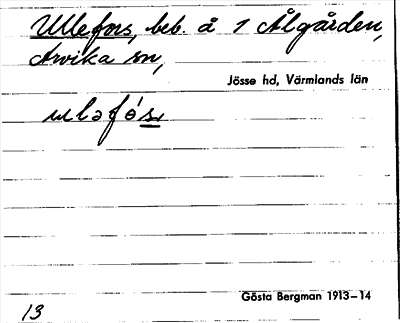 Ullefors, beb. å 1 Ålgården,
Arvika sn,
Jösse hd, Värmlands län
ɯləfós
Gösta Bergman 1913–14
13